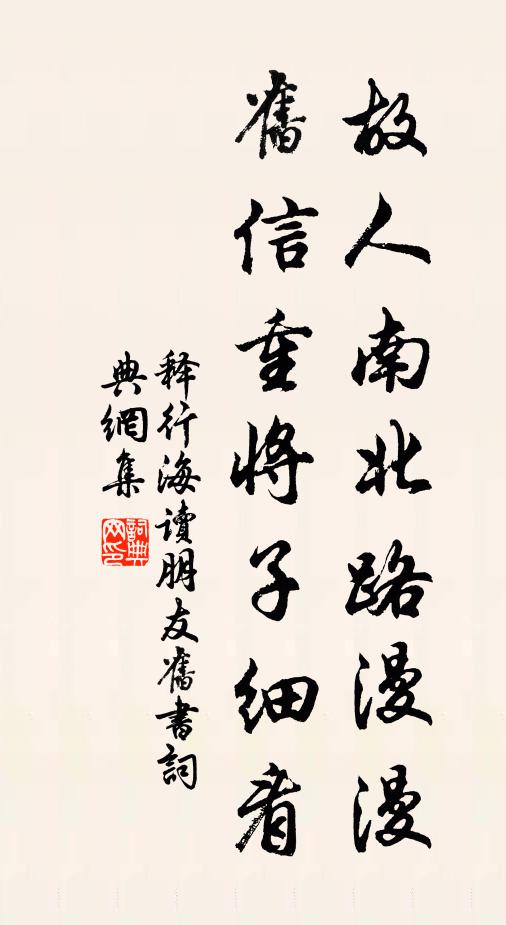 故人南北路漫漫
舊信重將子細看
释行海讀朋友舊書詞
典網集
詞典網印